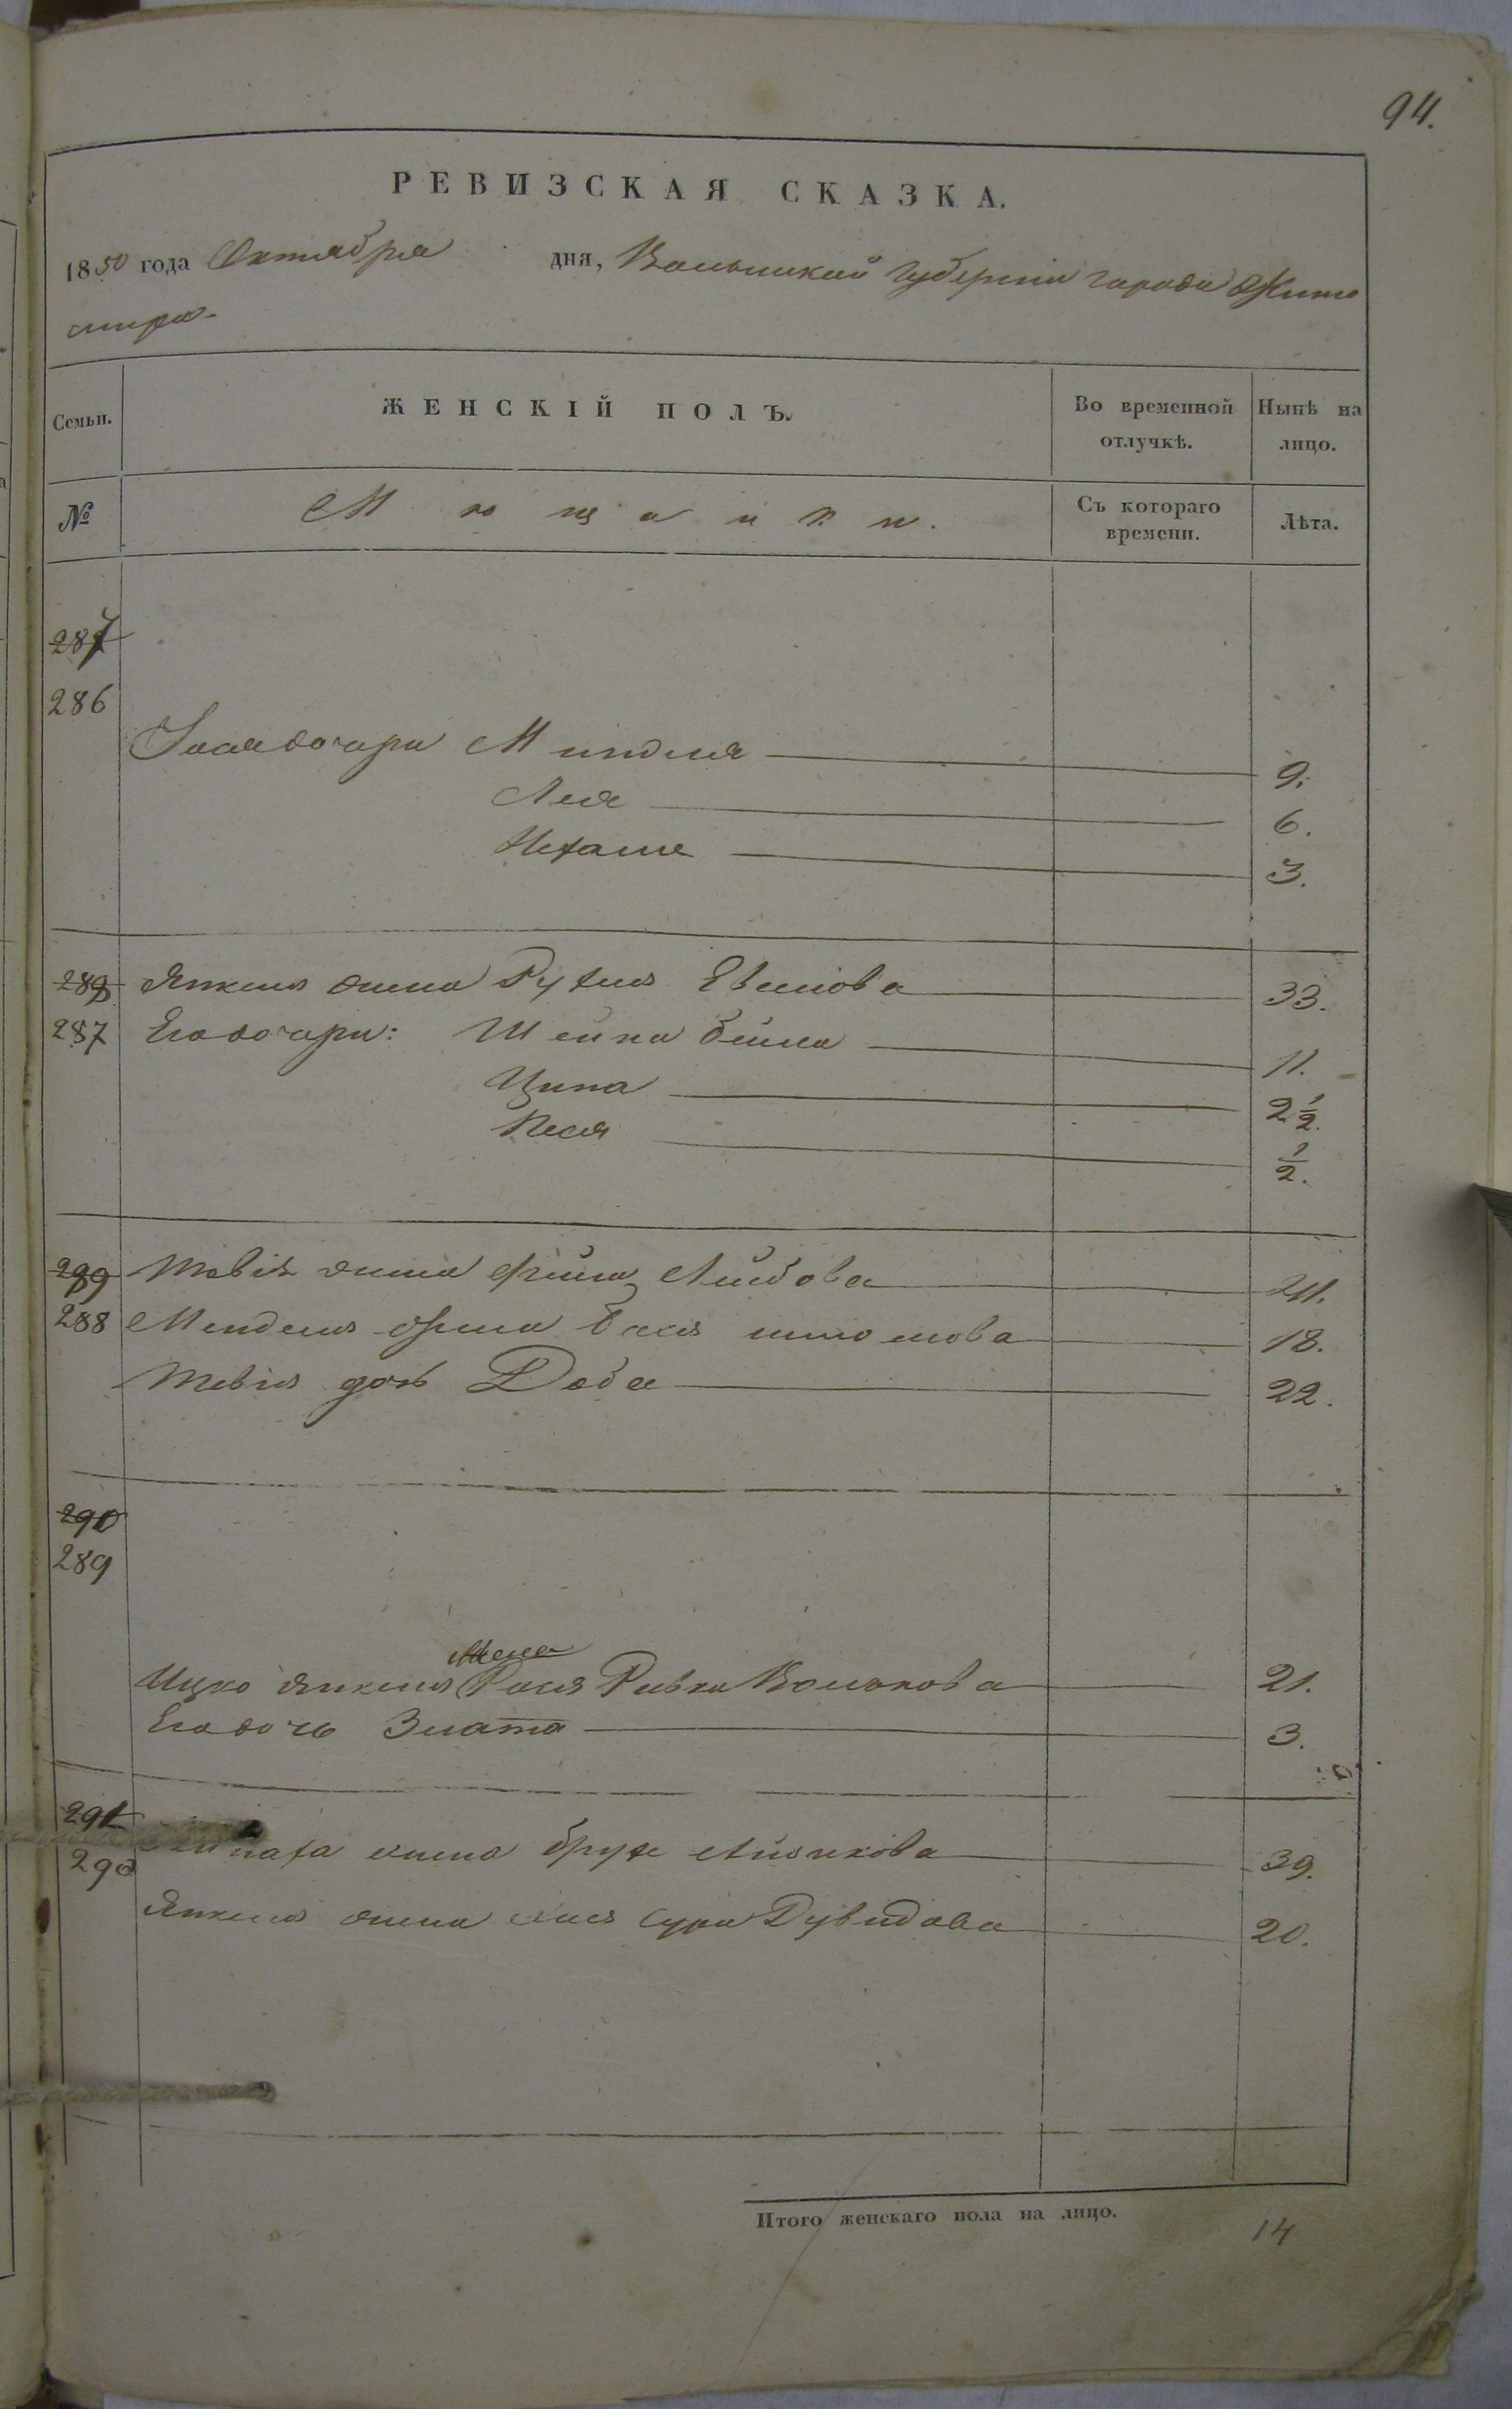 94.
РЕВИЗСКАЯ СКАЗКА.
1850 года Октября дня, Волынской Губерніи города Жито
мира
Семьи. ЖЕНСКІЙ ПОЛЪ. Во временной отлучкѣ. Нынѣ на лицо.
№ Мѣщанки. Съ котораго времени. Лѣта.
287
286
дочери Миндля 9.
Лея 6.
Нехаме 3.
288 Янкеля жена Рухля 33.
287 Его дочери: Шейна Бейла 11.
Ципа 2 1/2.
Песя 1/2.
289 Тевія жена Лейбова 41.
288 Менделя жена Бася Шлиомова 18.
Тевія дочь Доба 22.
290
289
жена
Ицко Янкеля Рася Ривка Волькова 21.
Его дочь Злата 3.
291
290 жена Брухе Айзикова 39.
Янкеля жена Хая Сура Дувидова 20.
Итого женскаго пола на лицо. 14